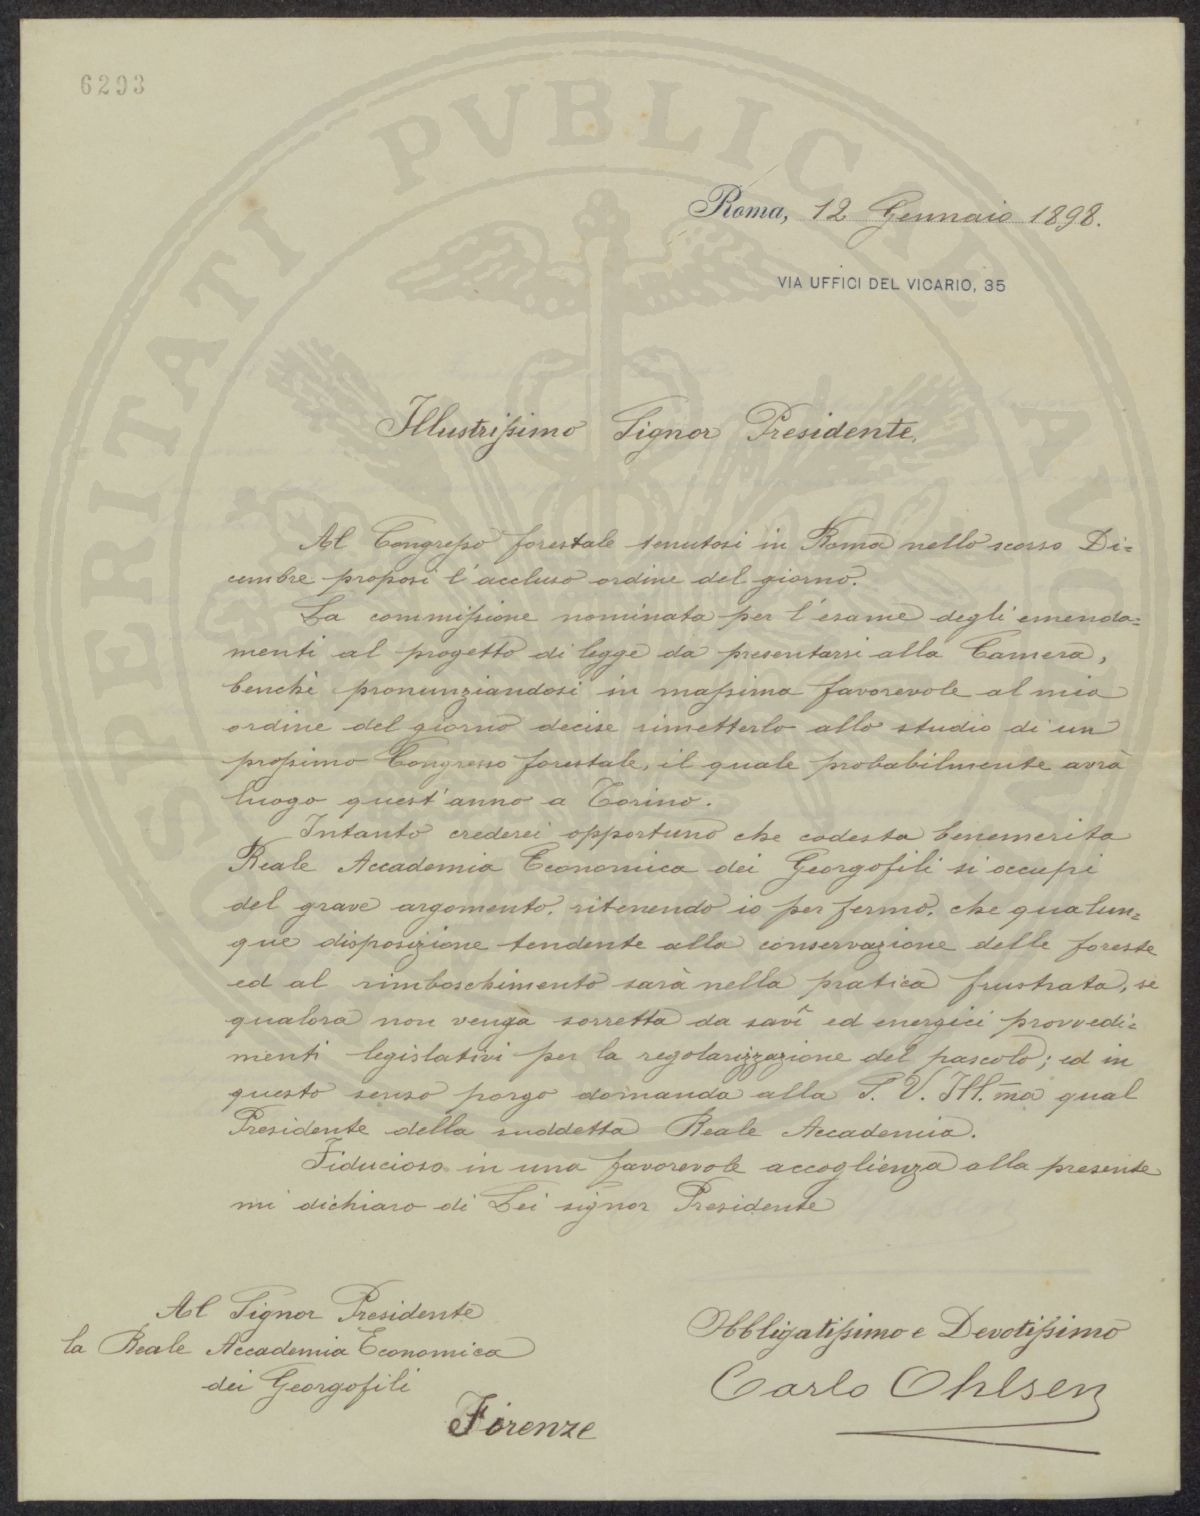 6293
PROSPERITATI PVBLICAE AVGENDAE
Roma, 12 Gennaio 1898.
VIA UFFICI DEL VICARIO, 35
Illustrissimo Signor Presidente,
Al Congresso forestale tenutosi in Roma nello scorso Di=
cembre proposi l'accluso ordine del giorno.
La commissione nominata per l'esame degli emenda=
menti al progetto di legge da presentarsi alla Camera,
benchè pronunziandosi in massima favorevole al mio
ordine del giorno decise rimetterlo allo studio di un
prossimo Congresso forestale, il quale probabilmente avrà
luogo quest'anno a Torino.
Intanto crederei opportuno che codesta benemerita
Reale Accademia Economica dei Georgofili si occupi
del grave argomento, ritenendo io per fermo, che qualun=
que disposizione tendente alla conservazione delle foreste
ed al rimboschimento sarà nella pratica frustrata, se
qualora non venga sorretta da savî ed energici provvedi=
menti legislativi per la regolarizzazione del pascolo; ed in
questo senso porgo domanda alla S. V. Ill.ma qual
Presidente della suddetta Reale Accademia.
Fiducioso in una favorevole accoglienza alla presente
mi dichiaro di Lei signor Presidente
Obbligatissimo e Devotissimo
Carlo Ohlsen
Al Signor Presidente
la Reale Accademia Economica
dei Georgofili
Firenze